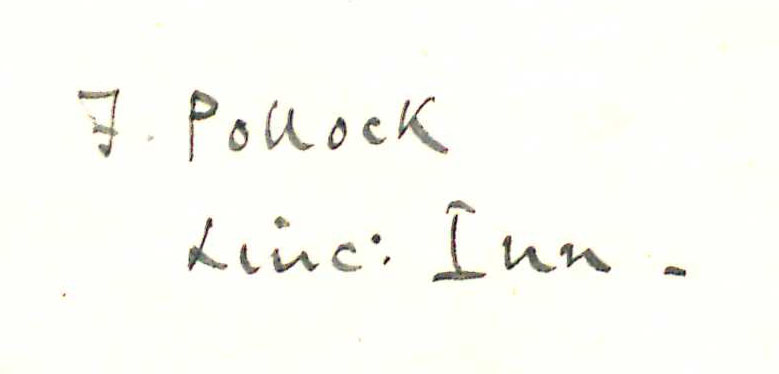 F. Pollock
Linc: Inn.